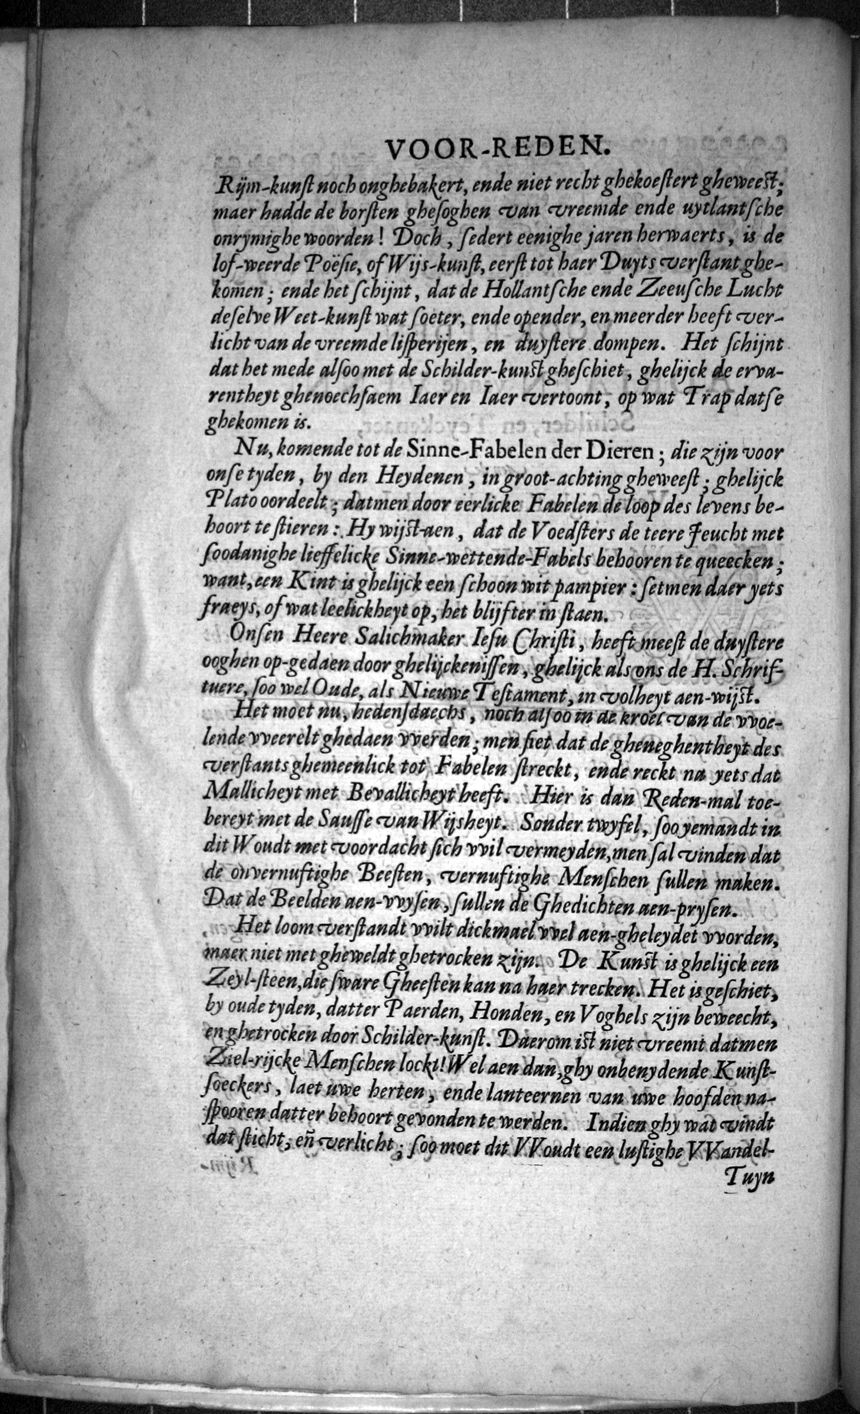 VOOR-REDEN.
Rijm-kunſt noch onghebakert, ende niet recht ghekoeſtert gheweeſt;
maer hadde de borſten gheſoghen van vreemde ende uytlantſche
onrymighe woorden! Doch, ſedert eenighe jaren herwaerts, is de
lof-weerde Poëſie, of Wijs-kunſt, eerſt tot haer Duyts verſtant ghe-
komen; ende het ſchijnt, dat de Hollantſche ende Zeeuſche Lucht
deſelve Weet-kunſt wat ſoeter, ende opender, en meerder heeft ver-
licht van de vreemde liſperijen, en duyſtere dompen. Het ſchijnt
dat het mede alſoo met de Schilder-kunſt gheſchiet, ghelijck de erva-
rentheyt ghenoechſaem Iaer en Iaer vertoont, op wat Trap datſe
ghekomen is.
Nu, komende tot de Sinne-Fabelen der Dieren; die zijn voor
onſe tyden, by den Heydenen, in groot-achting gheweeſt; ghelijck
Plato oordeelt; datmen door eerlicke Fabelen de loop des levens be-
hoort te ſtieren: Hy wijſt-aen, dat de Voedſters de teere Jeucht met
ſoodanighe lieffelicke Sinne-wettende-Fabels behooren te queecken;
want, een Kint is ghelijck een ſchoon wit pampier: ſetmen daer yets
fraeys, of wat leelickheyt op, het blijfter in ſtaen.
Onſen Heere Salichmaker Ieſu Chriſti, heeft meeſt de duyſtere
ooghen op-gedaen door ghelijckeniſſen, ghelijck als ons de H. Schrif-
tuere, ſoo wel Oude, als Nieuwe Teſtament, in volheyt aen-wijſt.
Het moet nu, hedenſdaechs, noch alſoo in de kroel van de vvoe-
lende vveerelt ghedaen vverden; men ſiet dat de gheneghentheyt des
verſtants ghemeenlick tot Fabelen ſtreckt, ende reckt na yets dat
Mallicheyt met Bevallicheyt heeft. Hier is dan Reden-mal toe-
bereyt met de Sauſſe van Wijsheyt. Sonder twyfel, ſoo yemandt in
dit Woudt met voordacht ſich vvil vermeyden, men ſal vinden dat
de onvernuftighe Beeſten, vernuftighe Menſchen ſullen maken.
Dat de Beelden aen-vvyſen, ſullen de Ghedichten aen-pryſen.
Het loom verſtandt vvilt dickmael vvel aen-gheleydet vvorden,
maer niet met gheweldt ghetrocken zijn. De Kunſt is ghelijck een
Zeyl-ſteen, die ſware Gheeſten kan na haer trecken. Het is geſchiet,
by oude tyden, datter Paerden, Honden, en Voghels zijn beweecht,
en ghetrocken door Schilder-kunſt. Daerom iſt niet vreemt datmen
Ziel-rijcke Menſchen lockt! Wel aen dan, ghy onbenydende Kunſt-
ſoeckers, laet uwe herten, ende lanteernen van uwe hoofden na-
ſpooren datter behoort gevonden te werden. Indien ghy wat vindt
dat ſticht, en̄ verlicht; ſoo moet dit VVoudt een luſtighe VVandel-
Tuyn